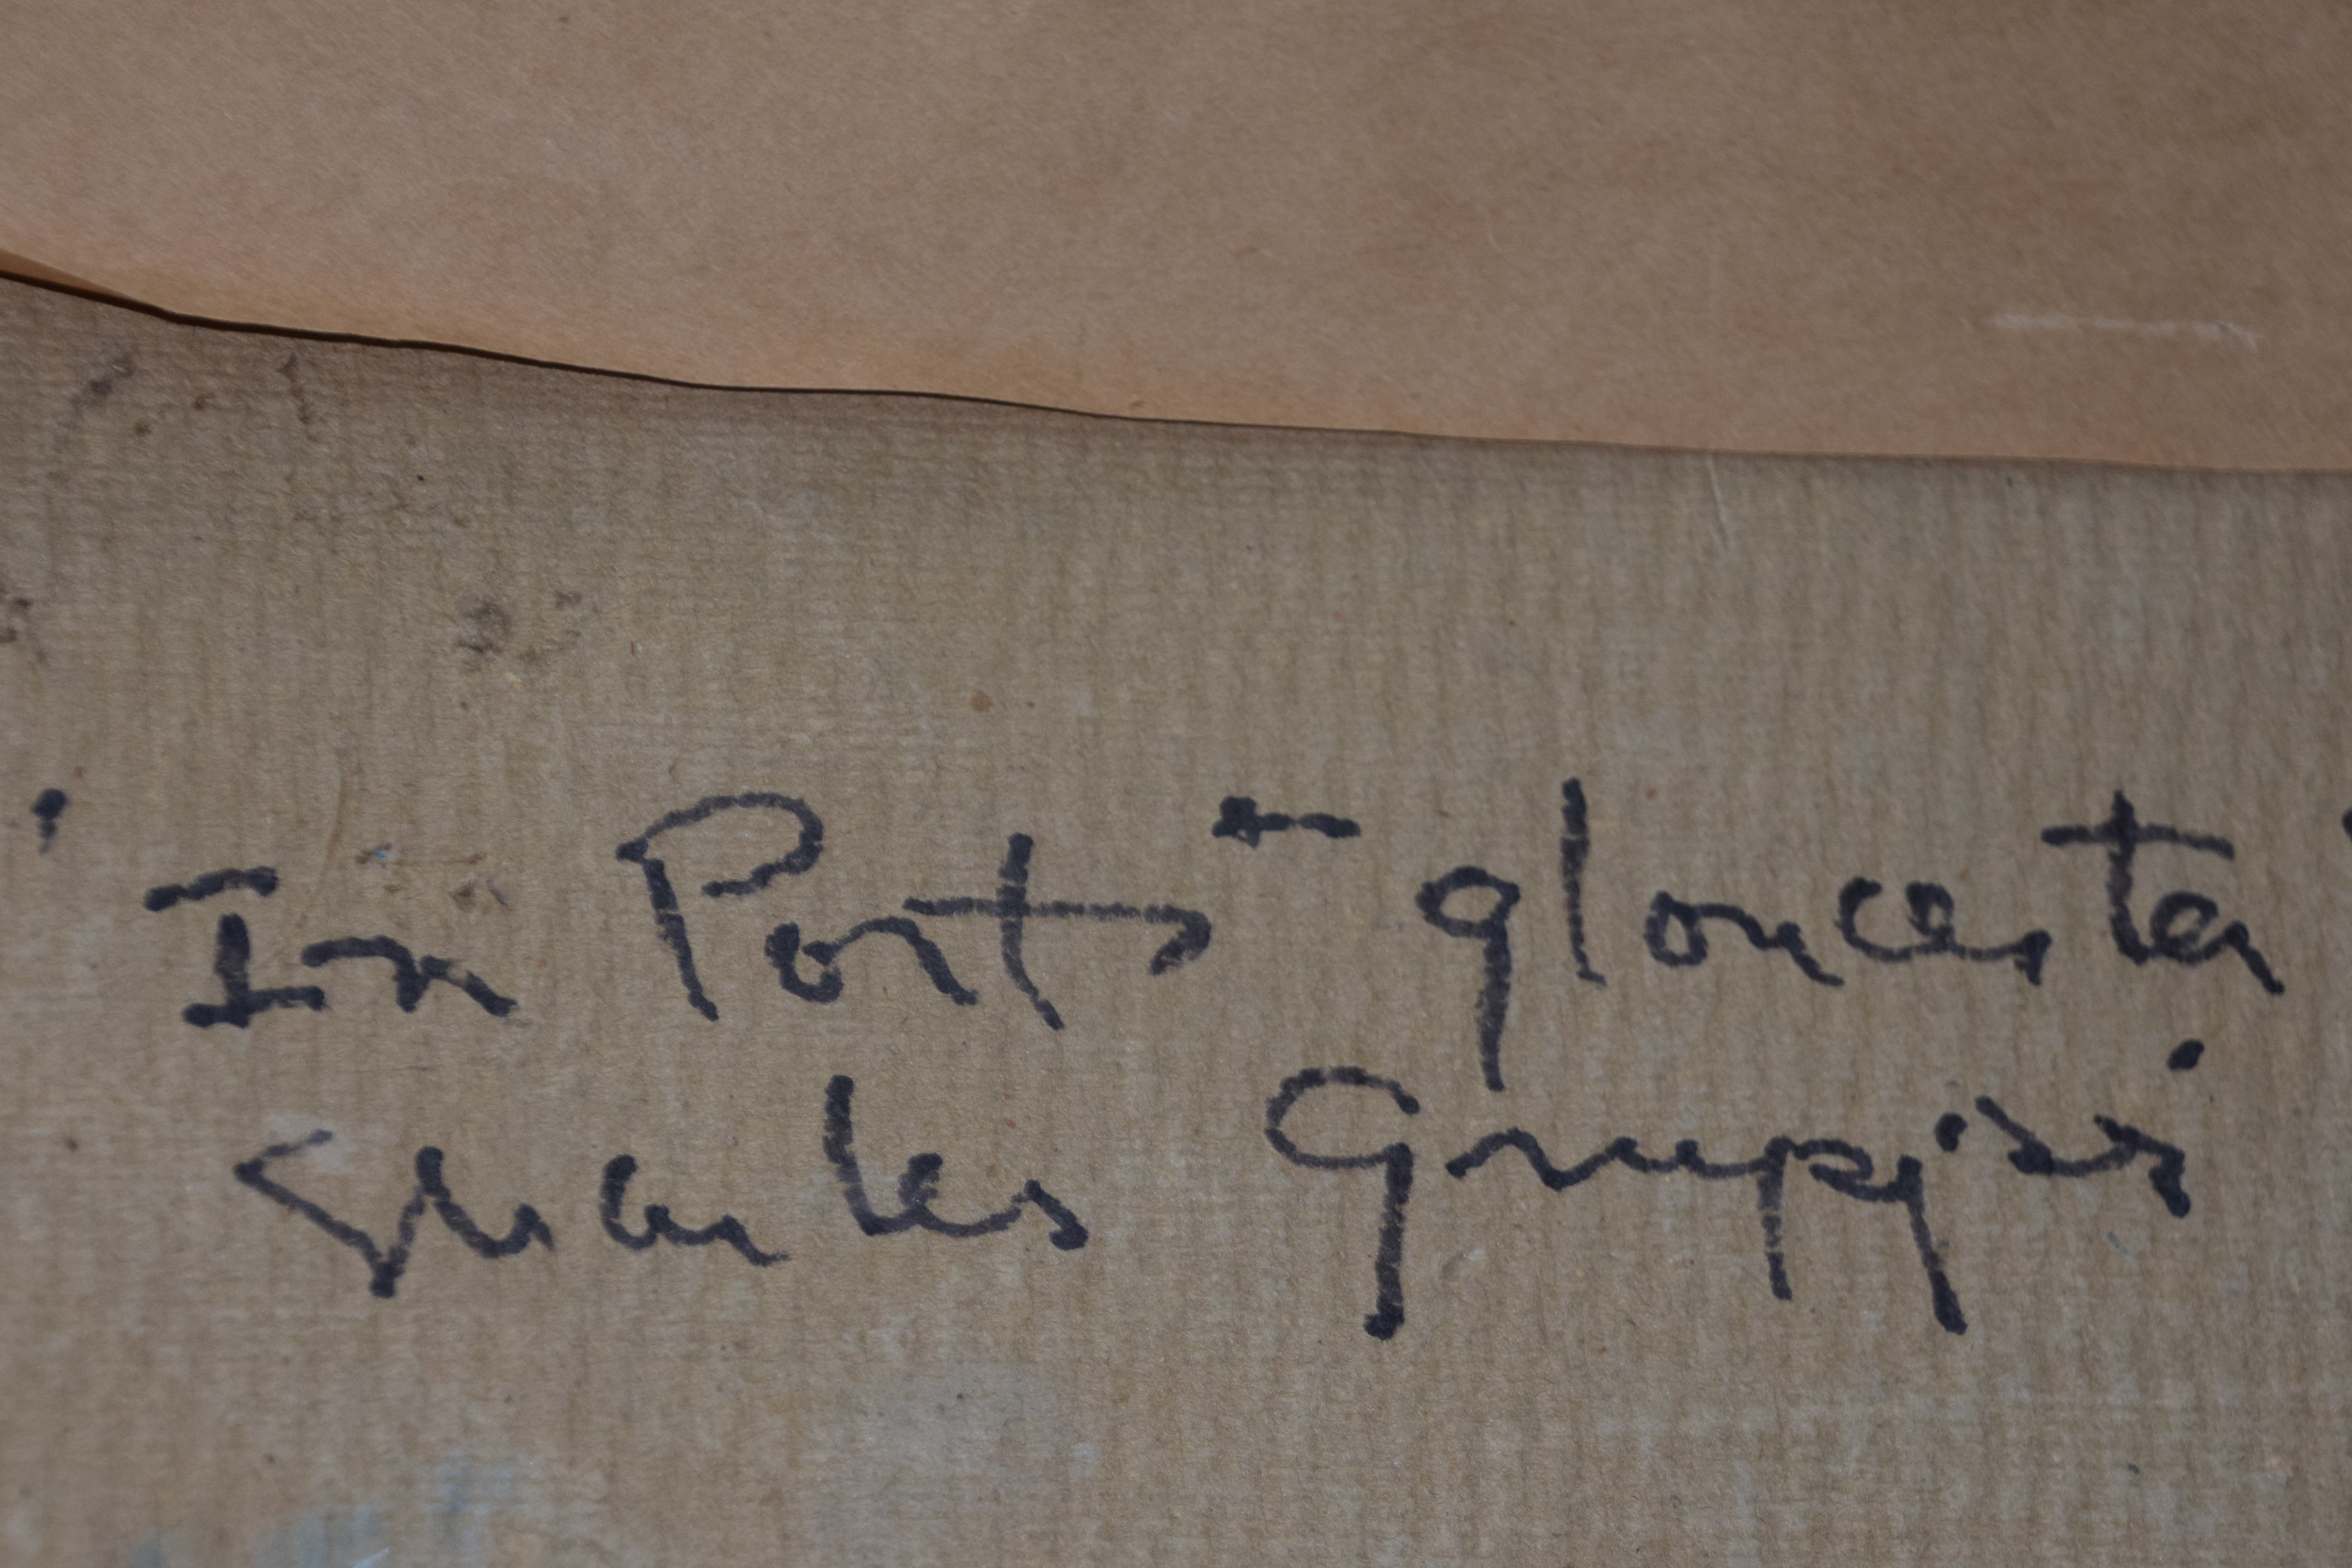 "In Port - Gloucester"
Charles Gruppé